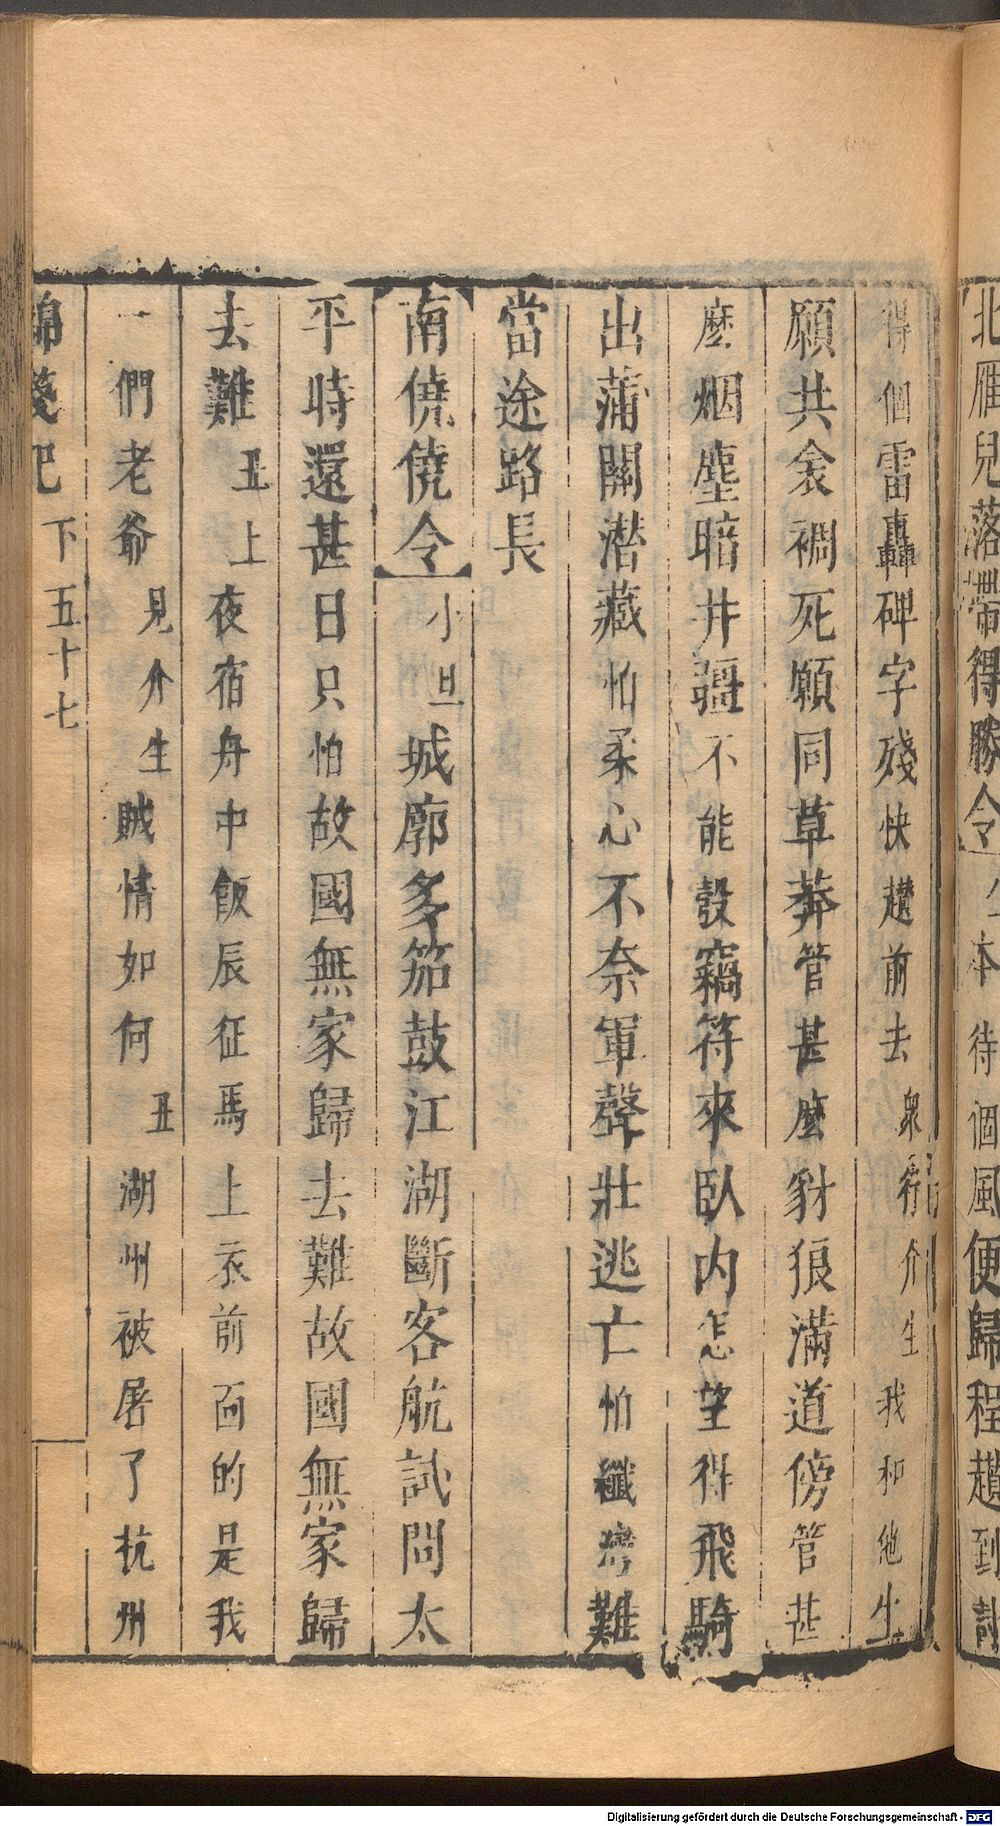 北雁兒落帶得勝令 本待個風便歸程趲到
得個雷轟碑字殘快趲前去衆行介生我和他生
願共衾裯死願同草莽管甚麼豺狼滿道傍管甚
麼烟塵暗井疆不能彀竊符來臥内怎望得飛騎
出蒲關潜藏怕柔心不奈軍聲壯逃亡怕纖灣難
當途路長
南僥僥令小旦城廓多笳鼓江湖斷客航試問太
平時還甚日只怕故國無家歸去難故國無家歸
去難丑上夜宿舟中飯辰征馬上衣前面的是我
一們老爺見介生賊情如何丑湖州被屠了抗州
錦箋記 下 五十七
Digitalisierung gefördert durch die Deutsche Forschungsgemeinschaft - DFG